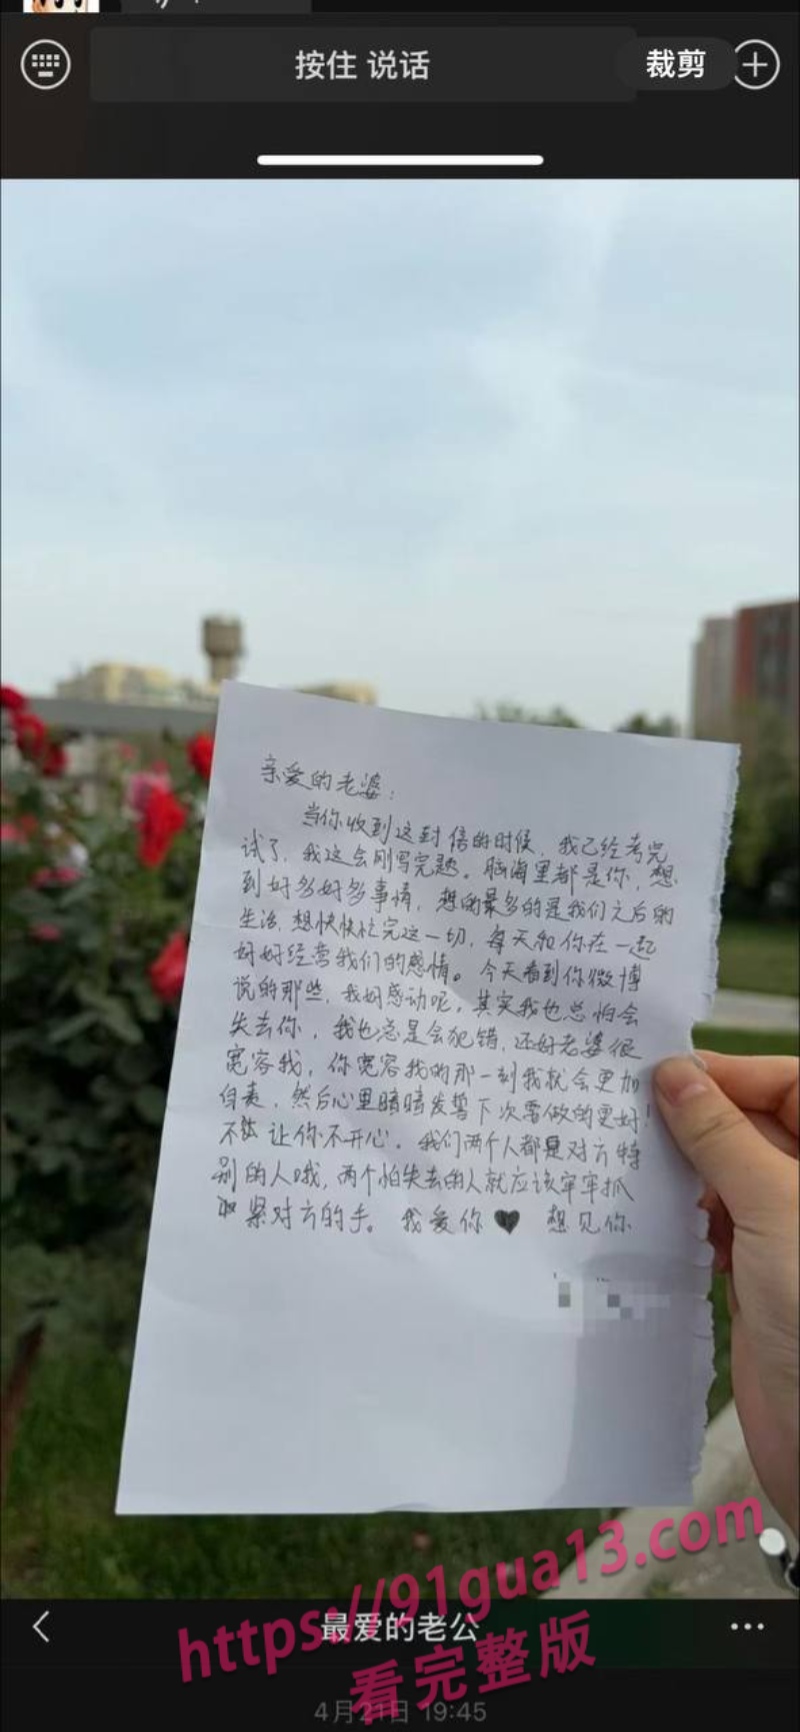 按住 说话
裁剪
亲爱的老婆：
当你收到这封信的时候，我已经考完
试了，我这会刚写完题。脑海里都是你，想
到好多好多事情，想的最多的是我们之后的
生活，想快快忙完这一切，每天和你在一起
好好经营我们的感情。今天看到你微博
说的那些，我好感动呢，其实我也总怕会
失去你，我也总是会犯错，还好老婆很
宽容我，你宽容我的那一刻我就会更加
自责，然后心里暗暗发誓下次要做的更好！
不能让你不开心。我们两个人都是对方特
别的人哦，两个怕失去的人就应该牢牢抓
紧对方的手。我爱你♥ 想见你
https://91gua13.com
最爱的老公
看完整版
4月21日 19:45